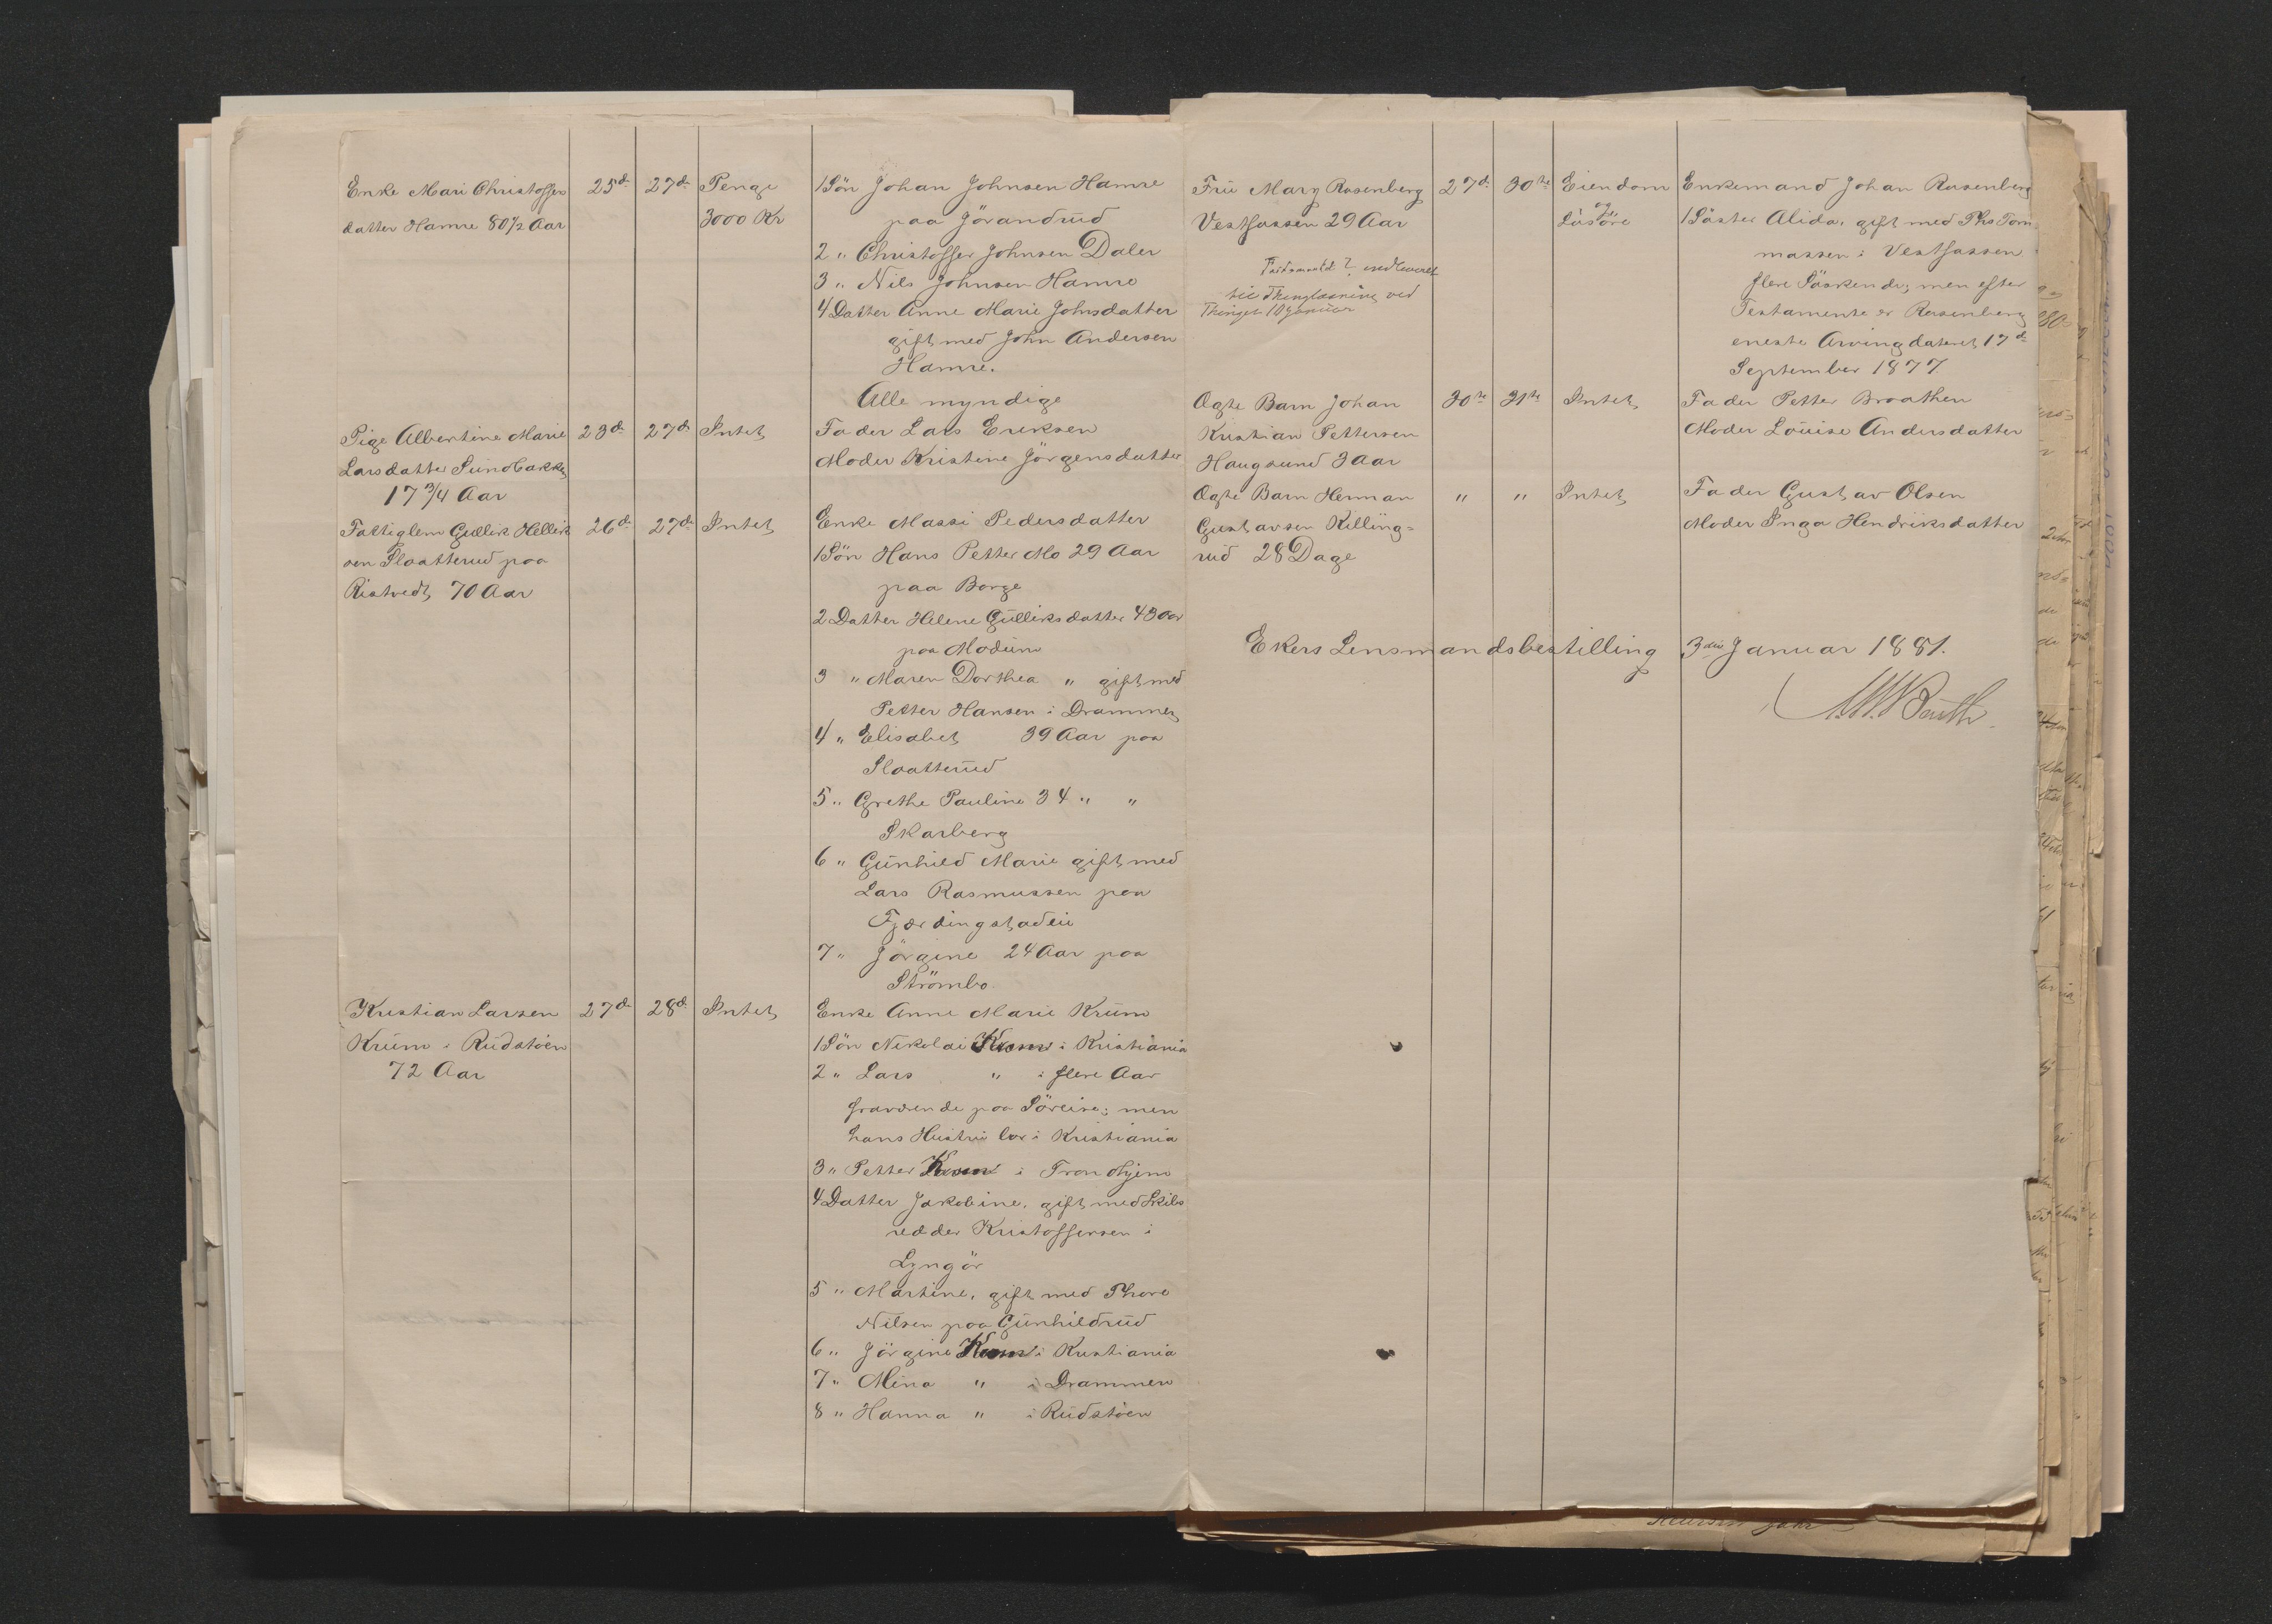 Enke Mari Christoffer
datter Hamre 80 1/2 Aar
25de 27de Penge
3000 Kr
1 Sön Johan Johnsen Hamre
paa Jörandrud
2 " Christoffer Johnsen Daler
3 " Nils Johnsen Hamre
4 Datter Anne Marie Johnsdatter
gift med John Andersen
Hamre.
Alle myndige
Pige Albertine Marie
Larsdatter Sundbakken
17 3/4 Aar
23de 27de Intet
Fader Lars Eriksen
Moder Kristine Jörgensdatter
Fattiglem Gullik Hellik
sen Slaatterud paa
Ristvedt 70 Aar
26de 27de Intet
Enke Massi Pedersdatter
1 Sön Hans Petter Mo 29 Aar
paa Borge
2 Datter Helene Gulliksdatter 43 Aar
paa Modum
3 " Maren Dorthea " gift med
Petter Hansen i Drammen
4 " Elisabet 39 Aar paa
Slaatterud
5 " Grethe Pauline 34 " "
Skarberg
6 " Gunhild Marie gift med
Lars Rasmussen paa
Fjerdingstadeie
7 " Jörgine 24 Aar paa
Strömbo
Kristian Larsen
Krum i Rudstöen
72 Aar
27de 28de Intet
Enke Anne Marie Krum
1 Sön Nikolai Krum i Kristiania
2 " Lars " i flere Aar
fraværende paa Söreise; men
hans Hustru bor i Kristiania
3 " Petter Krum i Trondhjem
4 Datter Jakobine, gift med Skibs
redder Kristoffersen i
Lyngör
5 " Martine, gift med Thore
Nilsen paa Gunhildrud
6 " Jörgine Krum i Kristiania
7 " Mina " i Drammen
8 " Hanna " i Rudstöen
Fru Mary Rosenberg
Vestfossen 29 Aar
27de 30te Eiendom
og
Lösöre
til Thinglæsning ved
Thinget 10 Januar
Enkemand Johan Rosenberg
1 Söster Alida, gift med Ths Tom
massen i Vestfossen
flere Söskende; men efter
Testamente er Rosenberg
eneste Arving dateret 17de
September 1877
Ægte Barn Johan
Kristian Pettersen
Haugsund 3 Aar
30te 31te Intet
Fader Petter Braathen
Moder Louise Andersdatter
Ægte Barn Herman
Gustavsen Killing-
rud 28 Dage
" " Intet
Fader Gustav Olsen
Moder Inga Hendriksdatter
Ekers Lensmandsbestilling 3die Januar 1881.